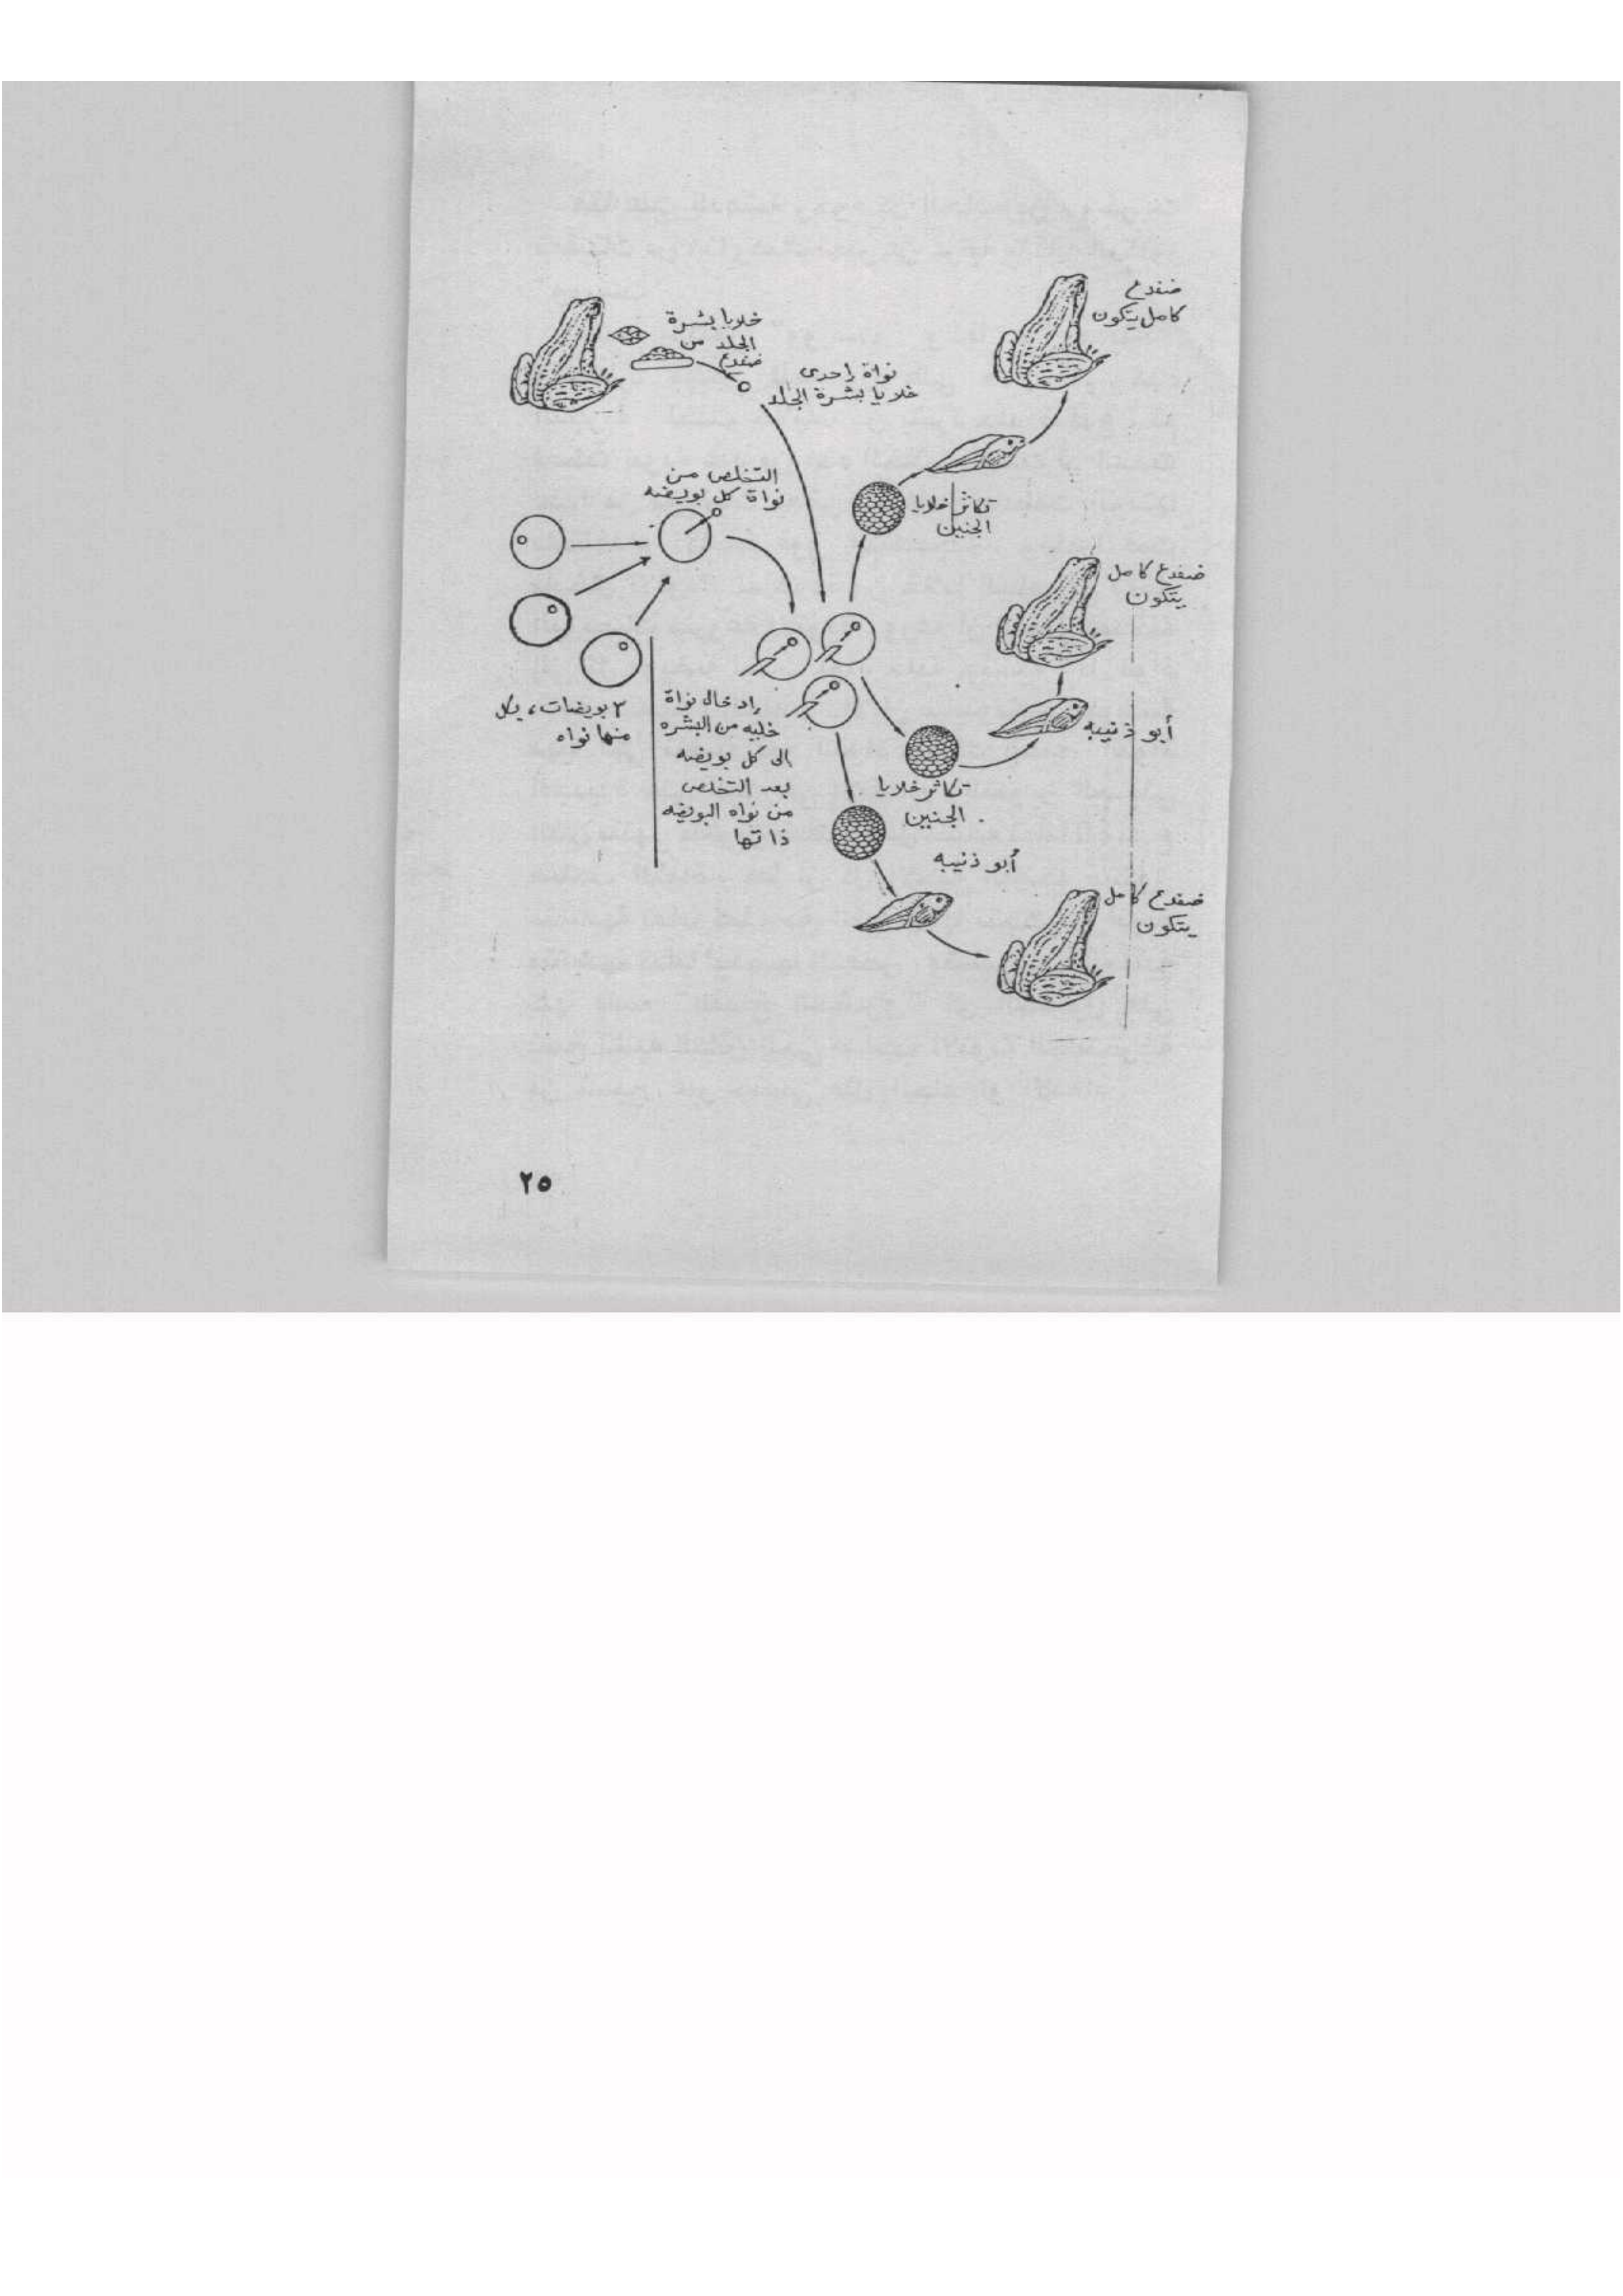 ضفدع
كامل يتكون
خلايا بشرة
الجلد من
ضفدع
نواة إحدى
خلايا بشرة الجلد
التخلص من
نواة كل بويضه
تكاثر خلايا
الجنين
ضفدع كامل
يتكون
٣ بويضات، بكل
منها نواه
إدخال نواة
خليه من البشره
الى كل بويضه
بعد التخلص
من نواه البويضه
ذاتها
أبو ذنيبه
تكاثر خلايا
الجنين
أبو ذنيبه
ضفدع كامل
يتكون
٢٥